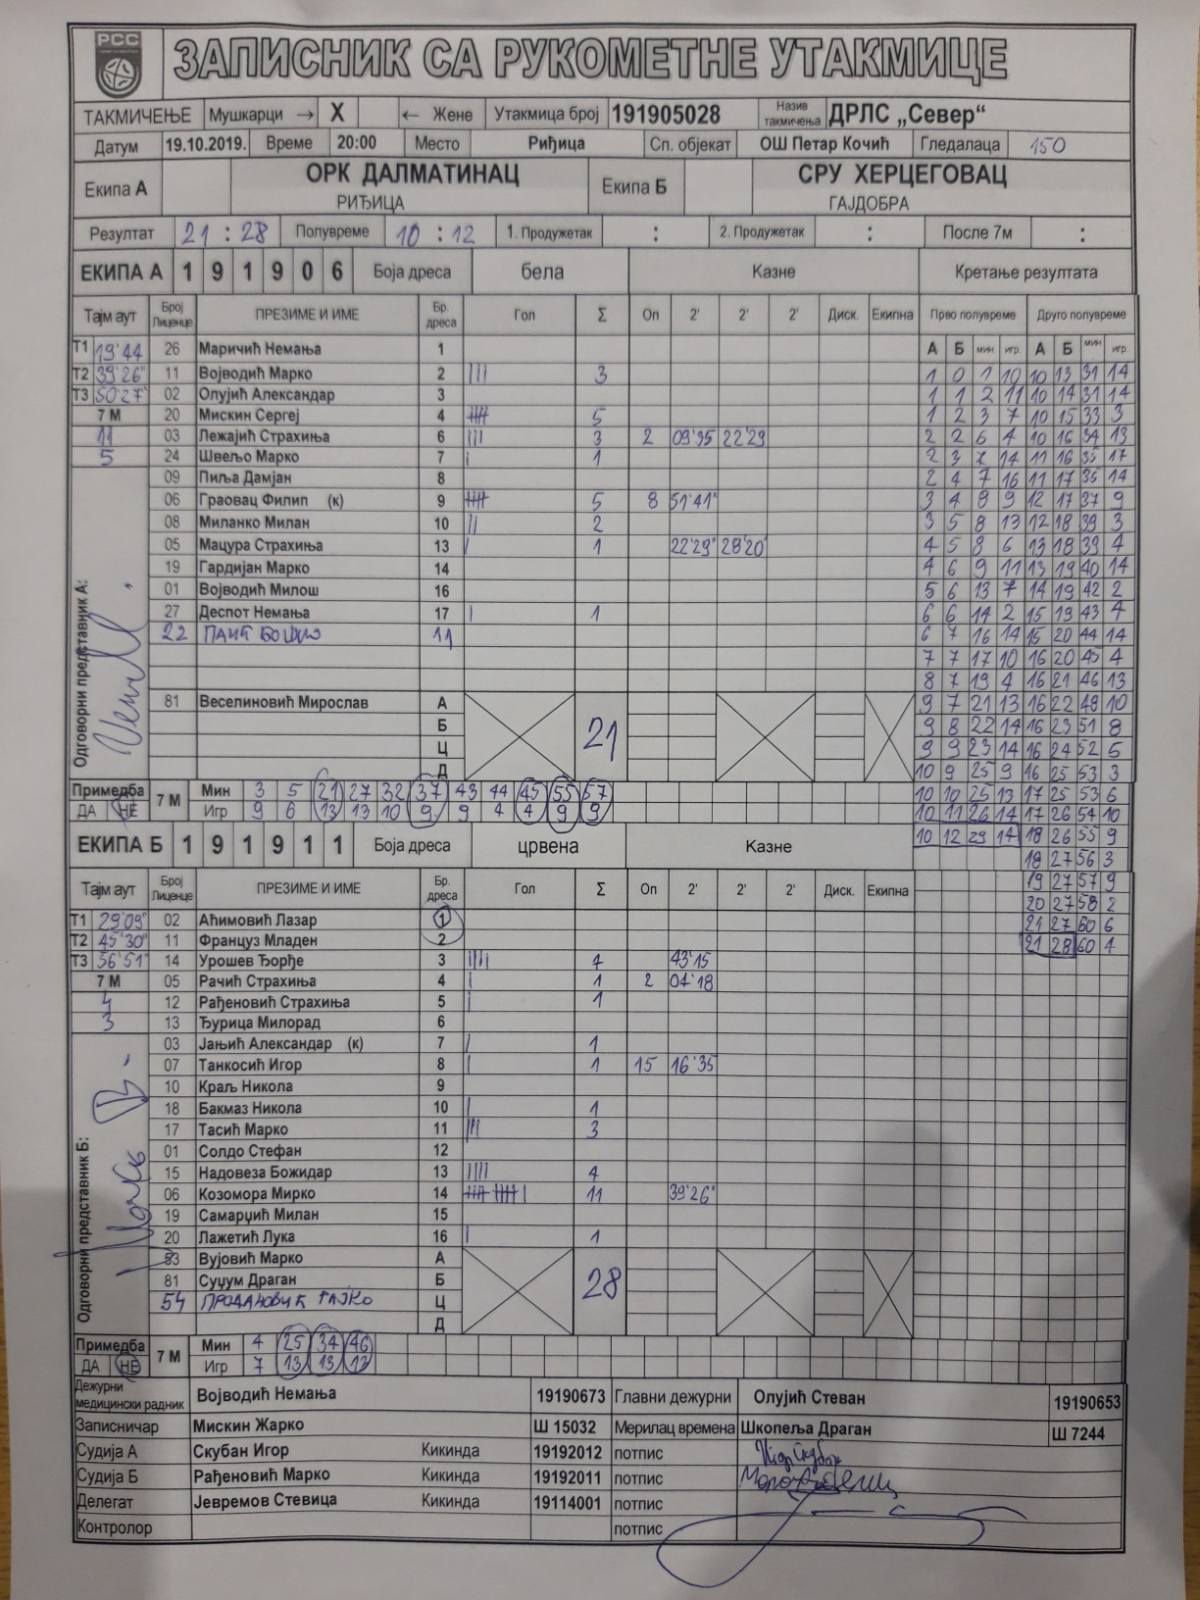 РСС
ЗАПИСНИК СА РУКОМЕТНЕ УТАКМИЦЕ
ТАКМИЧЕЊЕ Мушкарци → X ← Жене Утакмица број 191905028 Назив такмичења ДРЛС „Север“
Датум 19.10.2019. Време 20:00 Место Риђица Сп. објекат ОШ Петар Кочић Гледалаца 150
Екипа А ОРК ДАЛМАТИНАЦ Екипа Б СРУ ХЕРЦЕГОВАЦ
РИЂИЦА ГАЈДОБРА
Резултат 21 : 28 Полувреме 10 : 12 1. Продужетак : 2. Продужетак : После 7м :
ЕКИПА А 1 9 1 9 0 6 Боја дреса бела Казне Кретање резултата
Тајм аут Број Лиценце ПРЕЗИМЕ И ИМЕ Бр. дреса Гол Σ Оп 2' 2' 2' Диск. Екипна Прво полувреме Друго полувреме
Т1 19'44 26 Маричић Немања 1 А Б мин игр. А Б мин игр.
Т2 39'26" 11 Војводић Марко 2 ||| 3 1 0 1 10 10 13 31 14
Т3 50'27" 02 Олујић Александар 3 1 1 2 11 10 14 31 14
7 М 20 Мискин Сергеј 4 5 1 2 3 7 10 15 33 3
11 03 Лежајић Страхиња 6 ||| 3 2 09'35 22'29 2 2 6 4 10 16 34 13
5 24 Швељо Марко 7 | 1 2 3 7 14 11 16 35 17
09 Пиља Дамјан 8 2 4 7 16 11 17 36 14
06 Граовац Филип (к) 9 5 8 51'41" 3 4 8 9 12 17 37 9
08 Миланко Милан 10 || 2 3 5 8 13 12 18 39 3
05 Мацура Страхиња 13 | 1 22'29" 28'20" 4 5 8 6 13 18 39 4
19 Гардијан Марко 14 4 6 9 11 13 19 40 14
01 Војводић Милош 16 5 6 13 7 14 19 42 2
27 Деспот Немања 17 | 1 6 6 14 2 15 19 43 4
22 11 6 7 16 14 15 20 44 14
7 7 17 10 16 20 45 4
8 7 19 4 16 21 46 13
81 Веселиновић Мирослав А 21 9 7 21 13 16 22 49 10
Б 9 8 22 14 16 23 51 8
Ц 9 9 23 14 16 24 52 5
Д 10 9 25 9 16 25 53 3
Примедба 7 М Мин 3 5 21 27 32 37 43 44 45 55 57 10 10 25 13 17 25 53 6
ДА НЕ Игр 9 6 13 13 10 9 9 4 4 9 9 10 11 26 14 17 26 54 10
ЕКИПА Б 1 9 1 9 1 1 Боја дреса црвена Казне 10 12 29 14 18 26 55 9
18 27 56 3
Тајм аут Број Лиценце ПРЕЗИМЕ И ИМЕ Бр. дреса Гол Σ Оп 2' 2' 2' Диск. Екипна 19 27 57 9
20 27 58 2
Т1 29'09" 02 Аћимовић Лазар 1 21 27 60 6
Т2 45'30" 11 Француз Младен 2 21 28 60 4
Т3 56'51" 14 Урошев Ђорђе 3 |||| 4 43'15
7 М 05 Рачић Страхиња 4 | 1 2 04'18
4 12 Рађеновић Страхиња 5 | 1
3 13 Ђурица Милорад 6
03 Јањић Александар (к) 7 | 1
07 Танкосић Игор 8 | 1 15 16'35
10 Краљ Никола 9
18 Бакмаз Никола 10 | 1
17 Тасић Марко 11 ||| 3
01 Солдо Стефан 12
15 Надовеза Божидар 13 |||| 4
06 Козомора Мирко 14 11 39'26"
19 Самарџић Милан 15
20 Лажетић Лука 16 | 1
83 Вујовић Марко А 28
81 Суџум Драган Б
54 Ц
Д
Одговорни представник А:
Одговорни представник Б:
Примедба 7 М Мин 4 25 34 46
ДА НЕ Игр 7 13 13 13
Дежурни медицински радник Војводић Немања 19190673 Главни дежурни Олујић Стеван 19190653
Записничар Мискин Жарко Ш 15032 Мерилац времена Шкопеља Драган Ш 7244
Судија А Скубан Игор Кикинда 19192012 потпис
Судија Б Рађеновић Марко Кикинда 19192011 потпис
Делегат Јевремов Стевица Кикинда 19114001 потпис
Контролор потпис